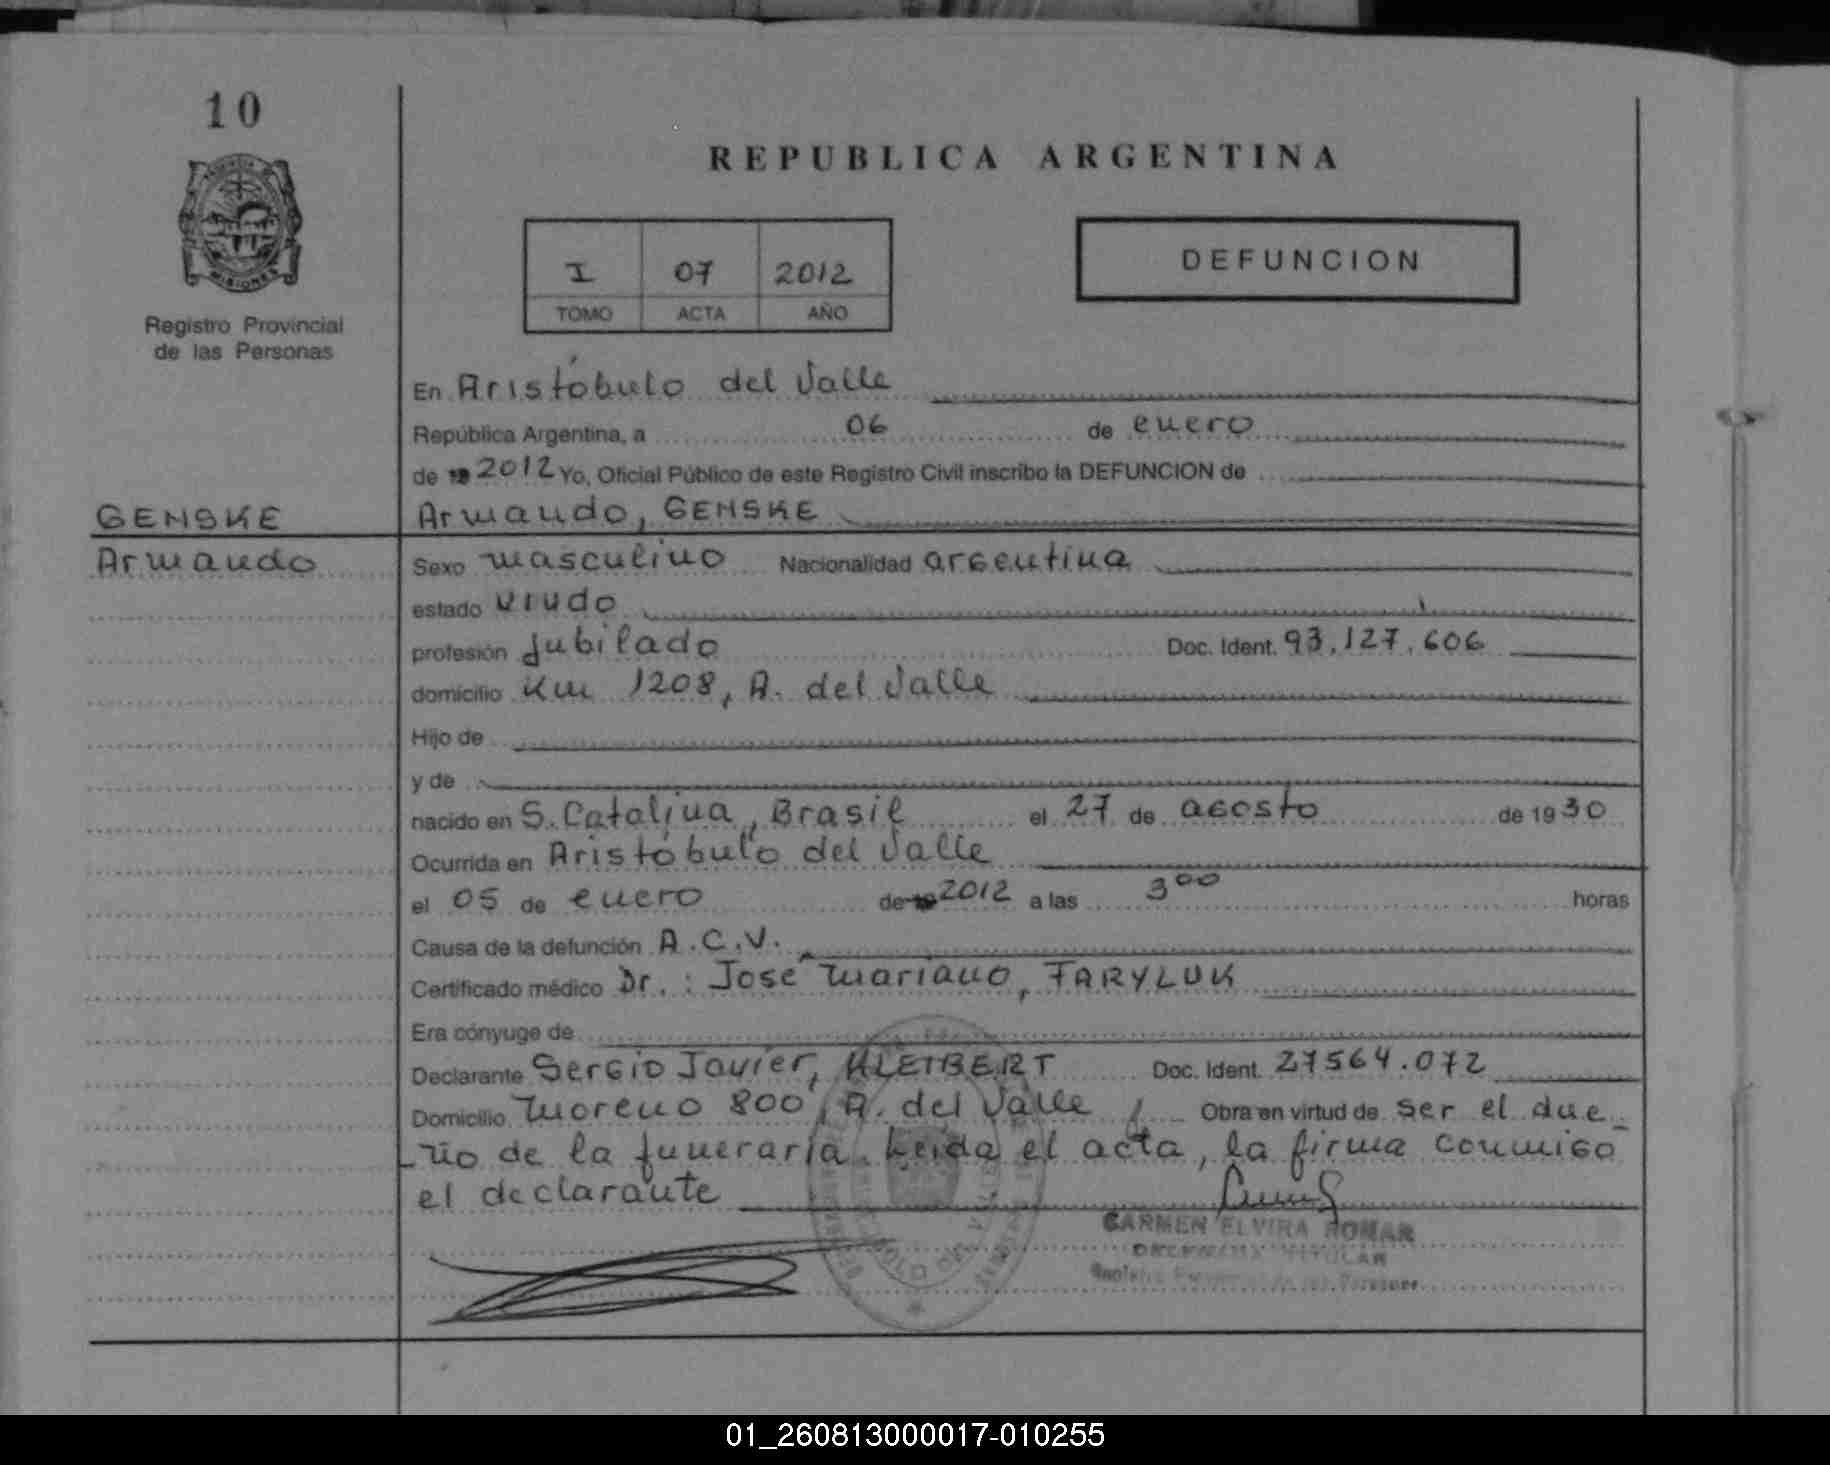 10
MISIONES
Registro Provincial
de las Personas
REPUBLICA ARGENTINA
I 07 2012
TOMO ACTA AÑO
DEFUNCION
En Aristóbulo del Valle
República Argentina, a 06 de enero
de 19 2012 Yo, Oficial Público de este Registro Civil inscribo la DEFUNCION de
GENSKE
Armando, GENSKE
Armando
Sexo masculino Nacionalidad argentina
estado viudo
profesión jubilado Doc. Ident. 93.127.606
domicilio Km 1208, A. del Valle
Hijo de
y de
nacido en S. Catalina, Brasil el 27 de agosto de 1930
Ocurrida en Aristóbulo del Valle
el 05 de enero de 19 2012 a las 3 00 horas
Causa de la defunción A.C.V.
Certificado médico Dr.: José Mariano, FARYLUK
Era cónyuge de
Declarante Sergio Javier, KLEIBERT Doc. Ident. 27564.072
Domicilio Moreno 800, A. del Valle Obra en virtud de ser el due_
_ño de la funeraria. Leida el acta, la firma conmigo
el declarante
CARMEN ELVIRA ROMAR
DELEGADA TITULAR
Registro Provincial de las Personas
01_260813000017-010255